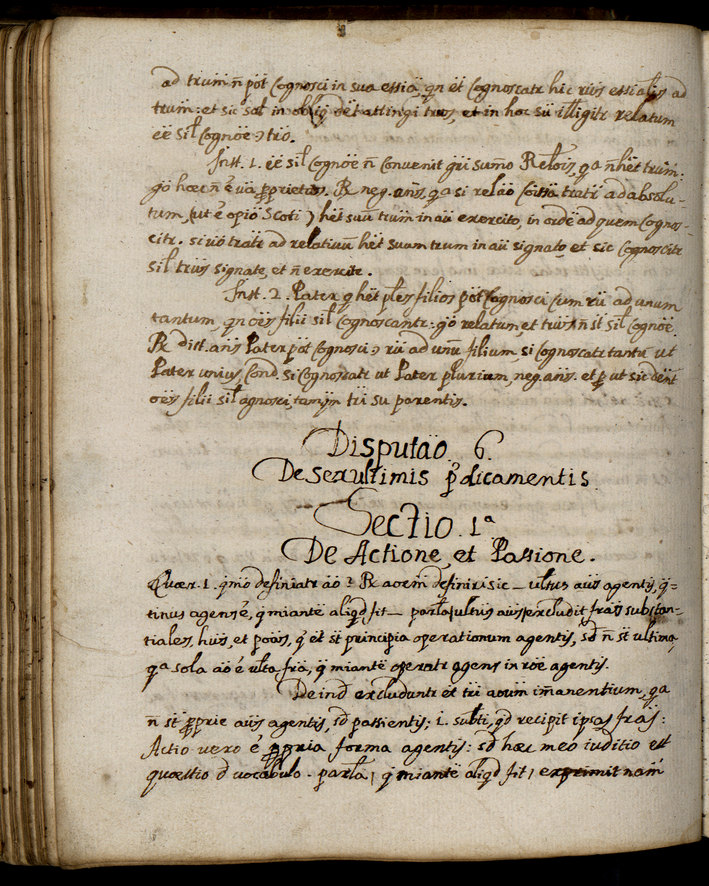 ad trum n̄ pōt Cognosci in sua essīa, qn ēt Cognoscatr hic rūs essialis ad
trum: et sic sol in obliq dēt attingi trūs, et in hoc sū illigitr relatum
ēē sil Cognōe ꝯ tro.
Inst. 1. ēē sil Cognōe n̄ Convenit gri sumo Relōis, qa n̄ hēt trum:
gō hoec n̄ ē ūa pprietas. R neg. añs, qa si relāo Coissa tratr ad absolu-
tum, (ut ē opīo Scoti) hēt suū trum in āu exercito, in ordē ad quem Cognos-
citr. si vō tratr ad relativū hēt suam trum in āu signato, et sic Cognoscitr
sil trūs signate, et n̄ exercite.
Inst. 2. Pater q hēt ples filios pōt Cognosci Cum rū ad unum
tantum, qn oēs filii sil Cognoscantr: gō relatum, et trūs n̄ st sil Cognōe.
R dist. añs Pater pōt Cognosci ꝯ rū ad unū filium si Cognoscatr tantū ut
Pater unius Cond. si Cognoscatr ut Pater plurium, neg. añs. et p ut sic dēnt
oēs filii sil agnosci, tamqm tri su parentis.
Disputāo. 6.
De sex ultimis p̄dicamentis
Sectio. 1ª
De Actione, et Passione.
Quær. 1. qmō definiatr āo? R aoem definiri sic _ ultus aūs agentis, q̄-
tinus agens ē, q miantē aliqd fit _ parla ultus aūs excludit frās substan-
tiales, hūs, et poās, q ēt st principia operationum agentis, sd n̄ st ultima,
qa sola āo ē ulta frā, q miantē operatr agens in rōe agentis.
Deind excluduntr ēt tri aoum imanentium, qa
n̄ st pprie aūs agentis, sd patientis; i. subti, qd recipit ipsas frās:
Actio vero ē ppria forma agentis: sd hæc meo iuditio est
quæstio d vocabulo. parla, q miantē aliqd fit, exprimit nam